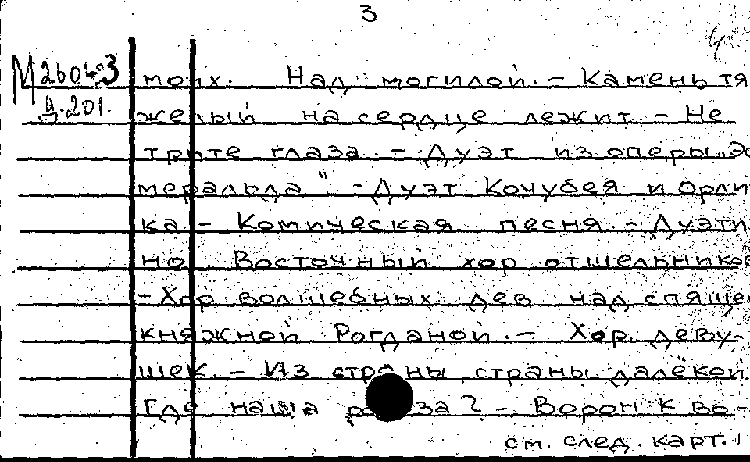 3
М 260 43 моих. Над могилой. – Камень тя
Д. 201. желый на сердце лежит – Не
трите глаза – Дуэт из оперы „Эс
меральда" – Дуэт Кочубея и Орли
ка – Комическая песня – Дуэти
но Восточный хор отшельников
– Хор волшебных дев над спящей
княжной Рогданой. – Хор деву-
шек. – Из страны, страны далёкой
Где наша роза? – Ворон к во-
см. след. карт.